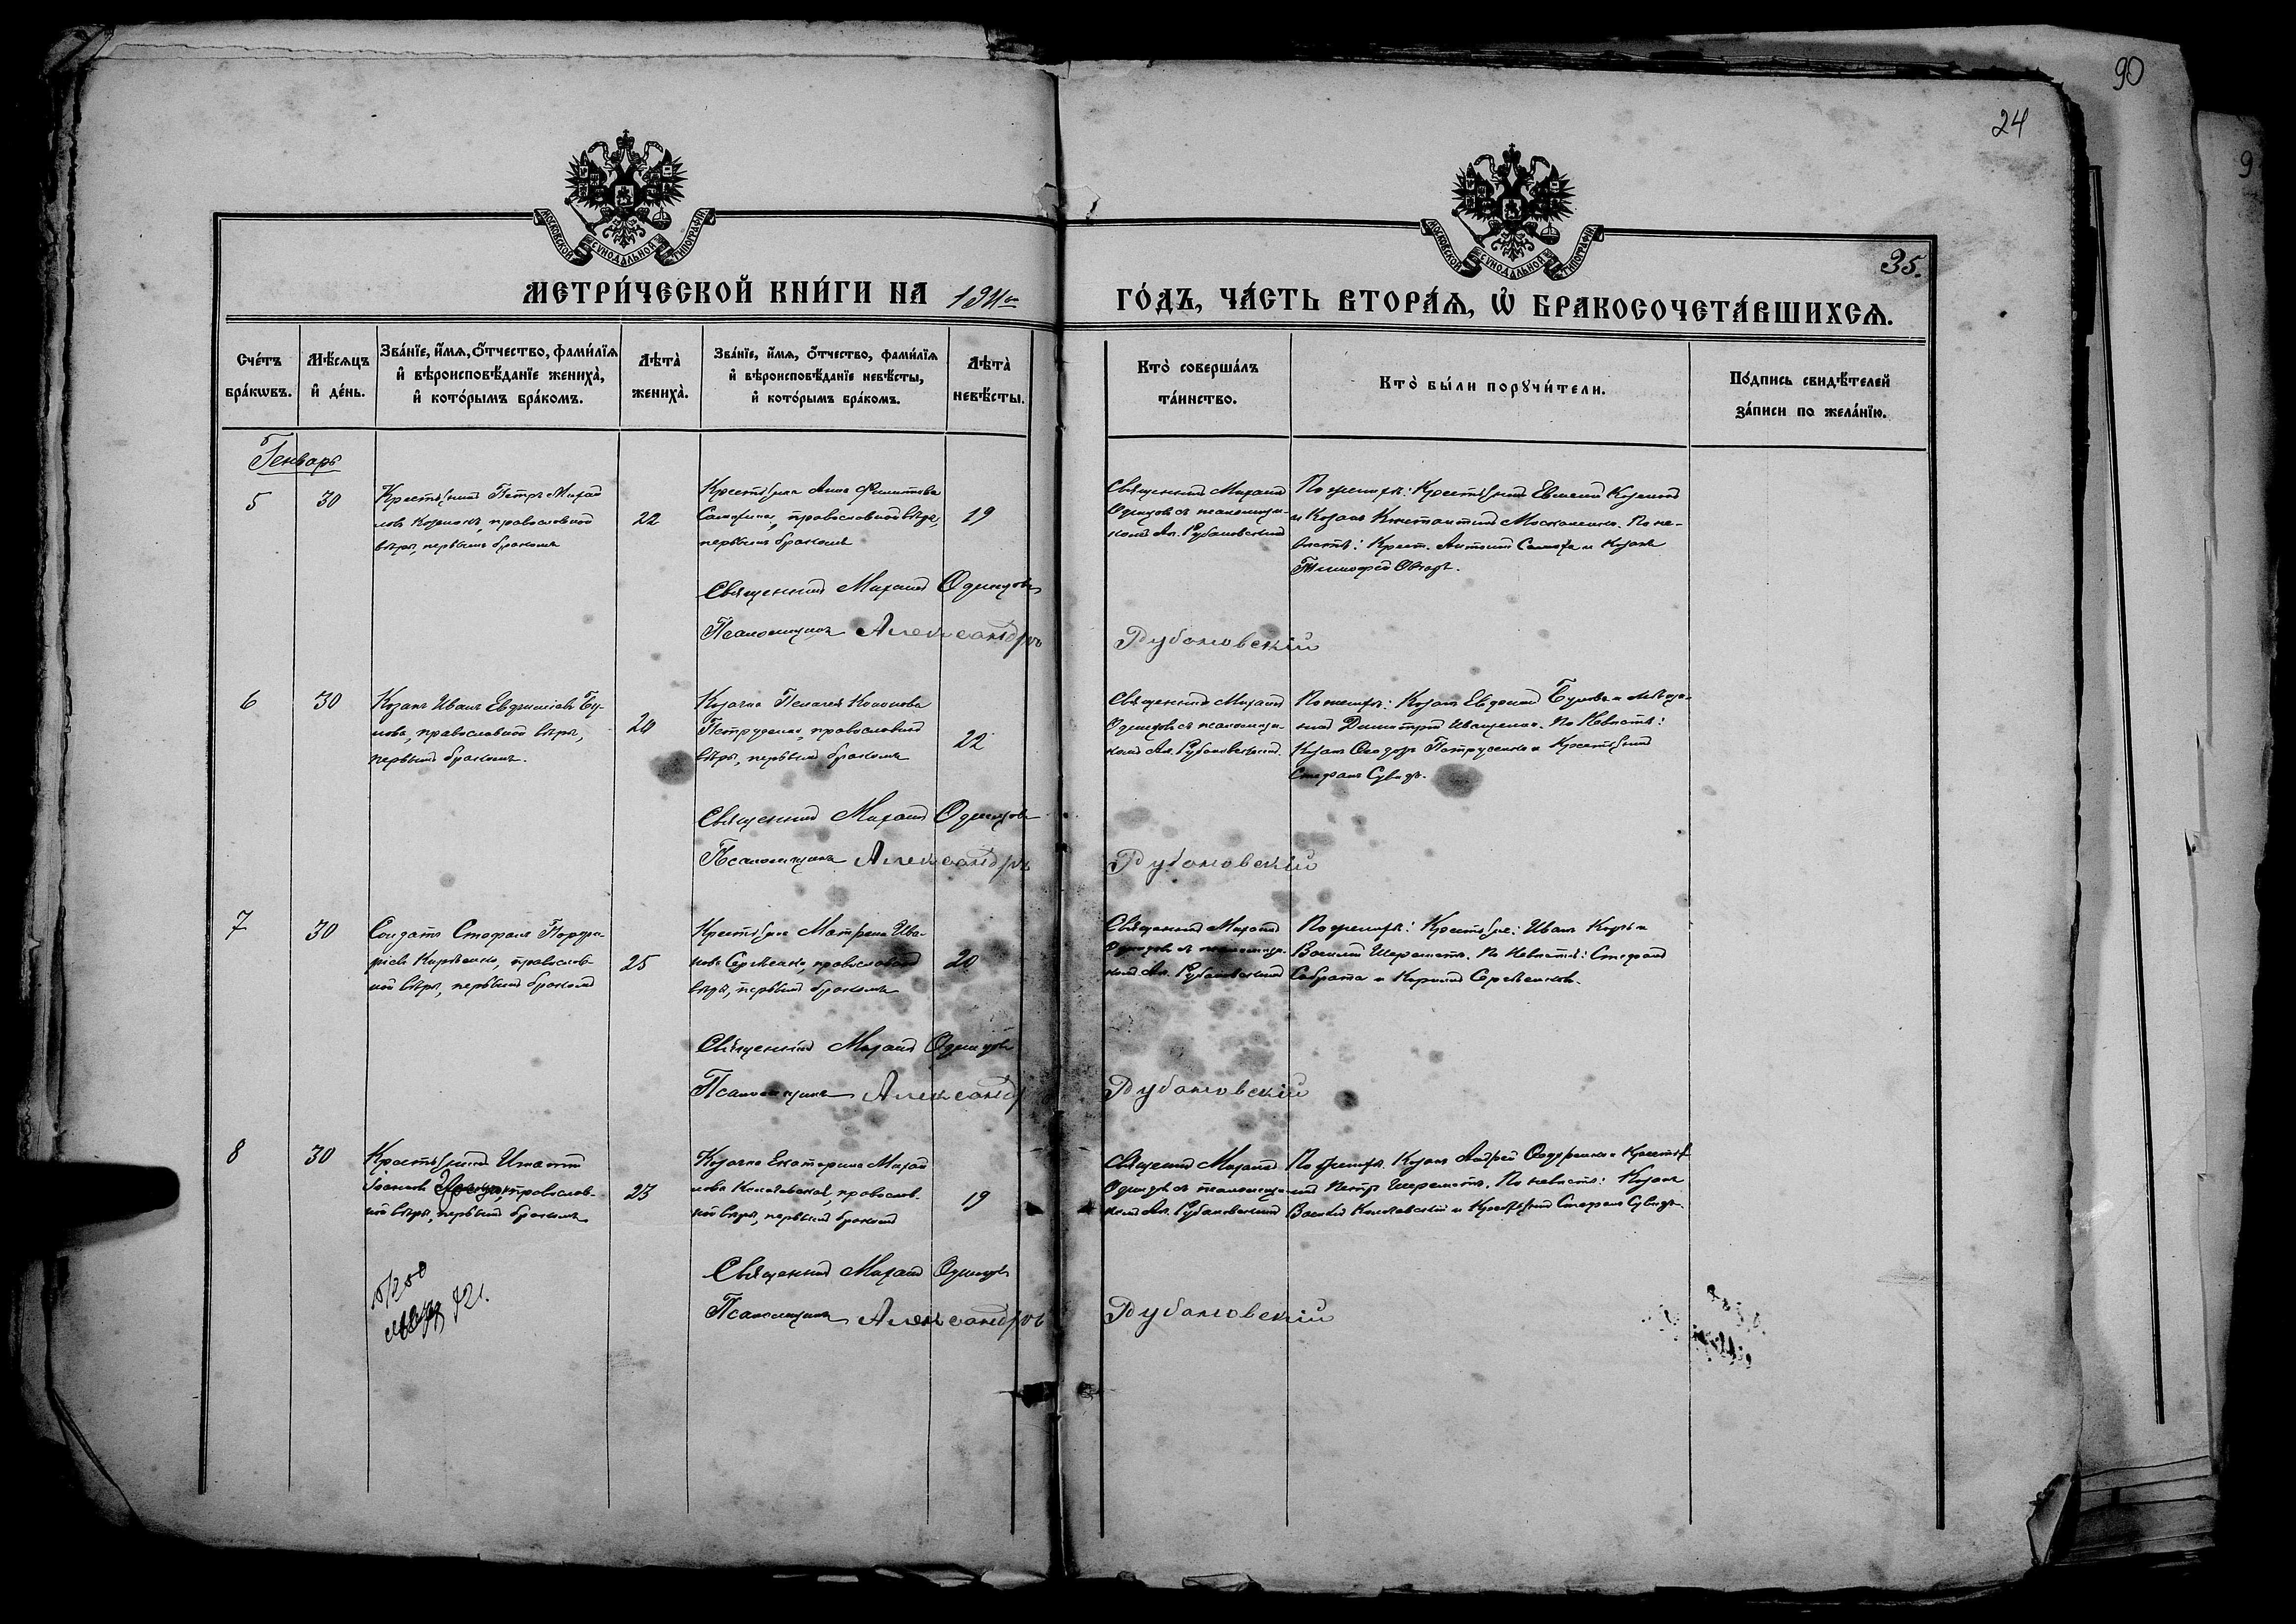 90
24
9
МОСКОВСКОЙ СѴНОДАЛЬНОЙ ТИПОГРАФІИ
МОСКОВСКОЙ СѴНОДАЛЬНОЙ ТИПОГРАФІИ
35.
МЕТРИ́ЧЕСКОЙ КНИ́ГИ НА 1911й
ГО́ДЪ, ЧА́СТЬ ВТОРА́Ѧ, Ѡ҆ БРАКОСОЧЕТА́ВШИХСѦ.
Сче́тъ бра́кѡвъ.
Мѣ́сѧцъ и҆ де́нь.
Зва́нїе, и҆́мѧ, ѻ҆́тчество, фами́лїѧ и҆ вѣроисповѣ́данїе жениха̀, и҆ кото́рымъ бра́комъ.
Лѣта̀ жениха̀.
Зва́нїе, и҆́мѧ, ѻ҆́тчество, фами́лїѧ и҆ вѣроисповѣ́данїе невѣ́сты, и҆ кото́рымъ бра́комъ.
Лѣта̀ невѣ́сты.
Кто̀ соверша́лъ та́инство.
Кто̀ бы́ли порꙋчи́тели.
По́дпись свидѣ́телей за́писи по жела́нїю.
Генварь
5
30
Крестьянинъ Петръ Михаи
ловъ православной
вѣры, первымъ бракомъ
22
Крестьянка Анна Филиппова
православной вѣры,
первымъ бракомъ
19
Священникъ Михаилъ
Одинцовъ съ псаломщи-
комъ Ал. Рубановскимъ
По женихѣ: Крестьянинъ Евменій
и Козакъ Константинъ Москаленко. По не-
вѣстѣ: Крест. Антоній и Козакъ
Тимофей
Священникъ Михаилъ Одинцовъ
Псаломщикъ Александръ Рубановскій
6
30
Козакъ Иванъ Евдокимовъ Бу-
православной вѣры,
первымъ бракомъ.
24
Козачка Пелагея Кононова
Петрусенко, православной
вѣры, первымъ бракомъ
22
Священникъ Михаилъ
Одинцовъ съ псаломщи-
комъ Ал. Рубановскимъ.
По женихѣ: Козакъ и мѣща-
нинъ Димитрій Иващенко. По невѣстѣ:
Козакъ Ѳеодоръ Петрусенко и Крестьянинъ
Стефанъ
Священникъ Михаилъ Одинцовъ
Псаломщикъ Александръ Рубановскій
7
30
Солдатъ Стефанъ Порфи-
ріевъ православ-
ной вѣры, первымъ бракомъ
25
Крестьянка Матрена Ива-
нова Сергѣенко, православной
вѣры, первымъ бракомъ
20
Священникъ Михаилъ
Одинцовъ съ псаломщи-
комъ Ал. Рубановскимъ
По женихѣ: Крестьяне: Иванъ и
Василій Шереметъ. По невѣстѣ: Стефанъ
и Кириллъ Сергѣенковъ.
Священникъ Михаилъ Одинцовъ
Псаломщикъ Александръ Рубановскій
8
30
Крестьянинъ Игнатій
Іоанновъ православ-
ной вѣры, первымъ бракомъ
23
Козачка Екатерина Михаи
лова православ-
ной вѣры, первымъ бракомъ
19
Священникъ Михаилъ
Одинцовъ съ псаломщи-
комъ Ал. Рубановскимъ
По женихѣ: Козакъ Андрей и Крестья
нинъ Петръ Шереметъ. По невѣстѣ: Козакъ
Василій и Крестьянинъ Стефанъ
Священникъ Михаилъ Одинцовъ
Псаломщикъ Александръ Рубановскій